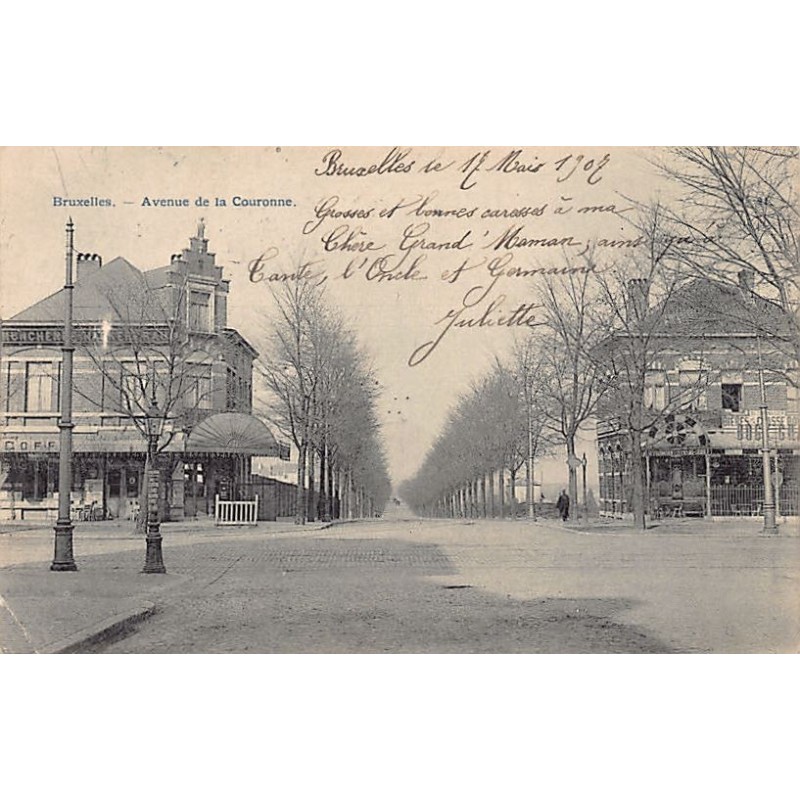 Bruxelles le 17 Mais 1907
Bruxelles. — Avenue de la Couronne.
Grosses et bonnes caresses à ma
Chère Grand'Maman, ainsi qu'à
Tante, l'Oncle et Germaine
Juliette